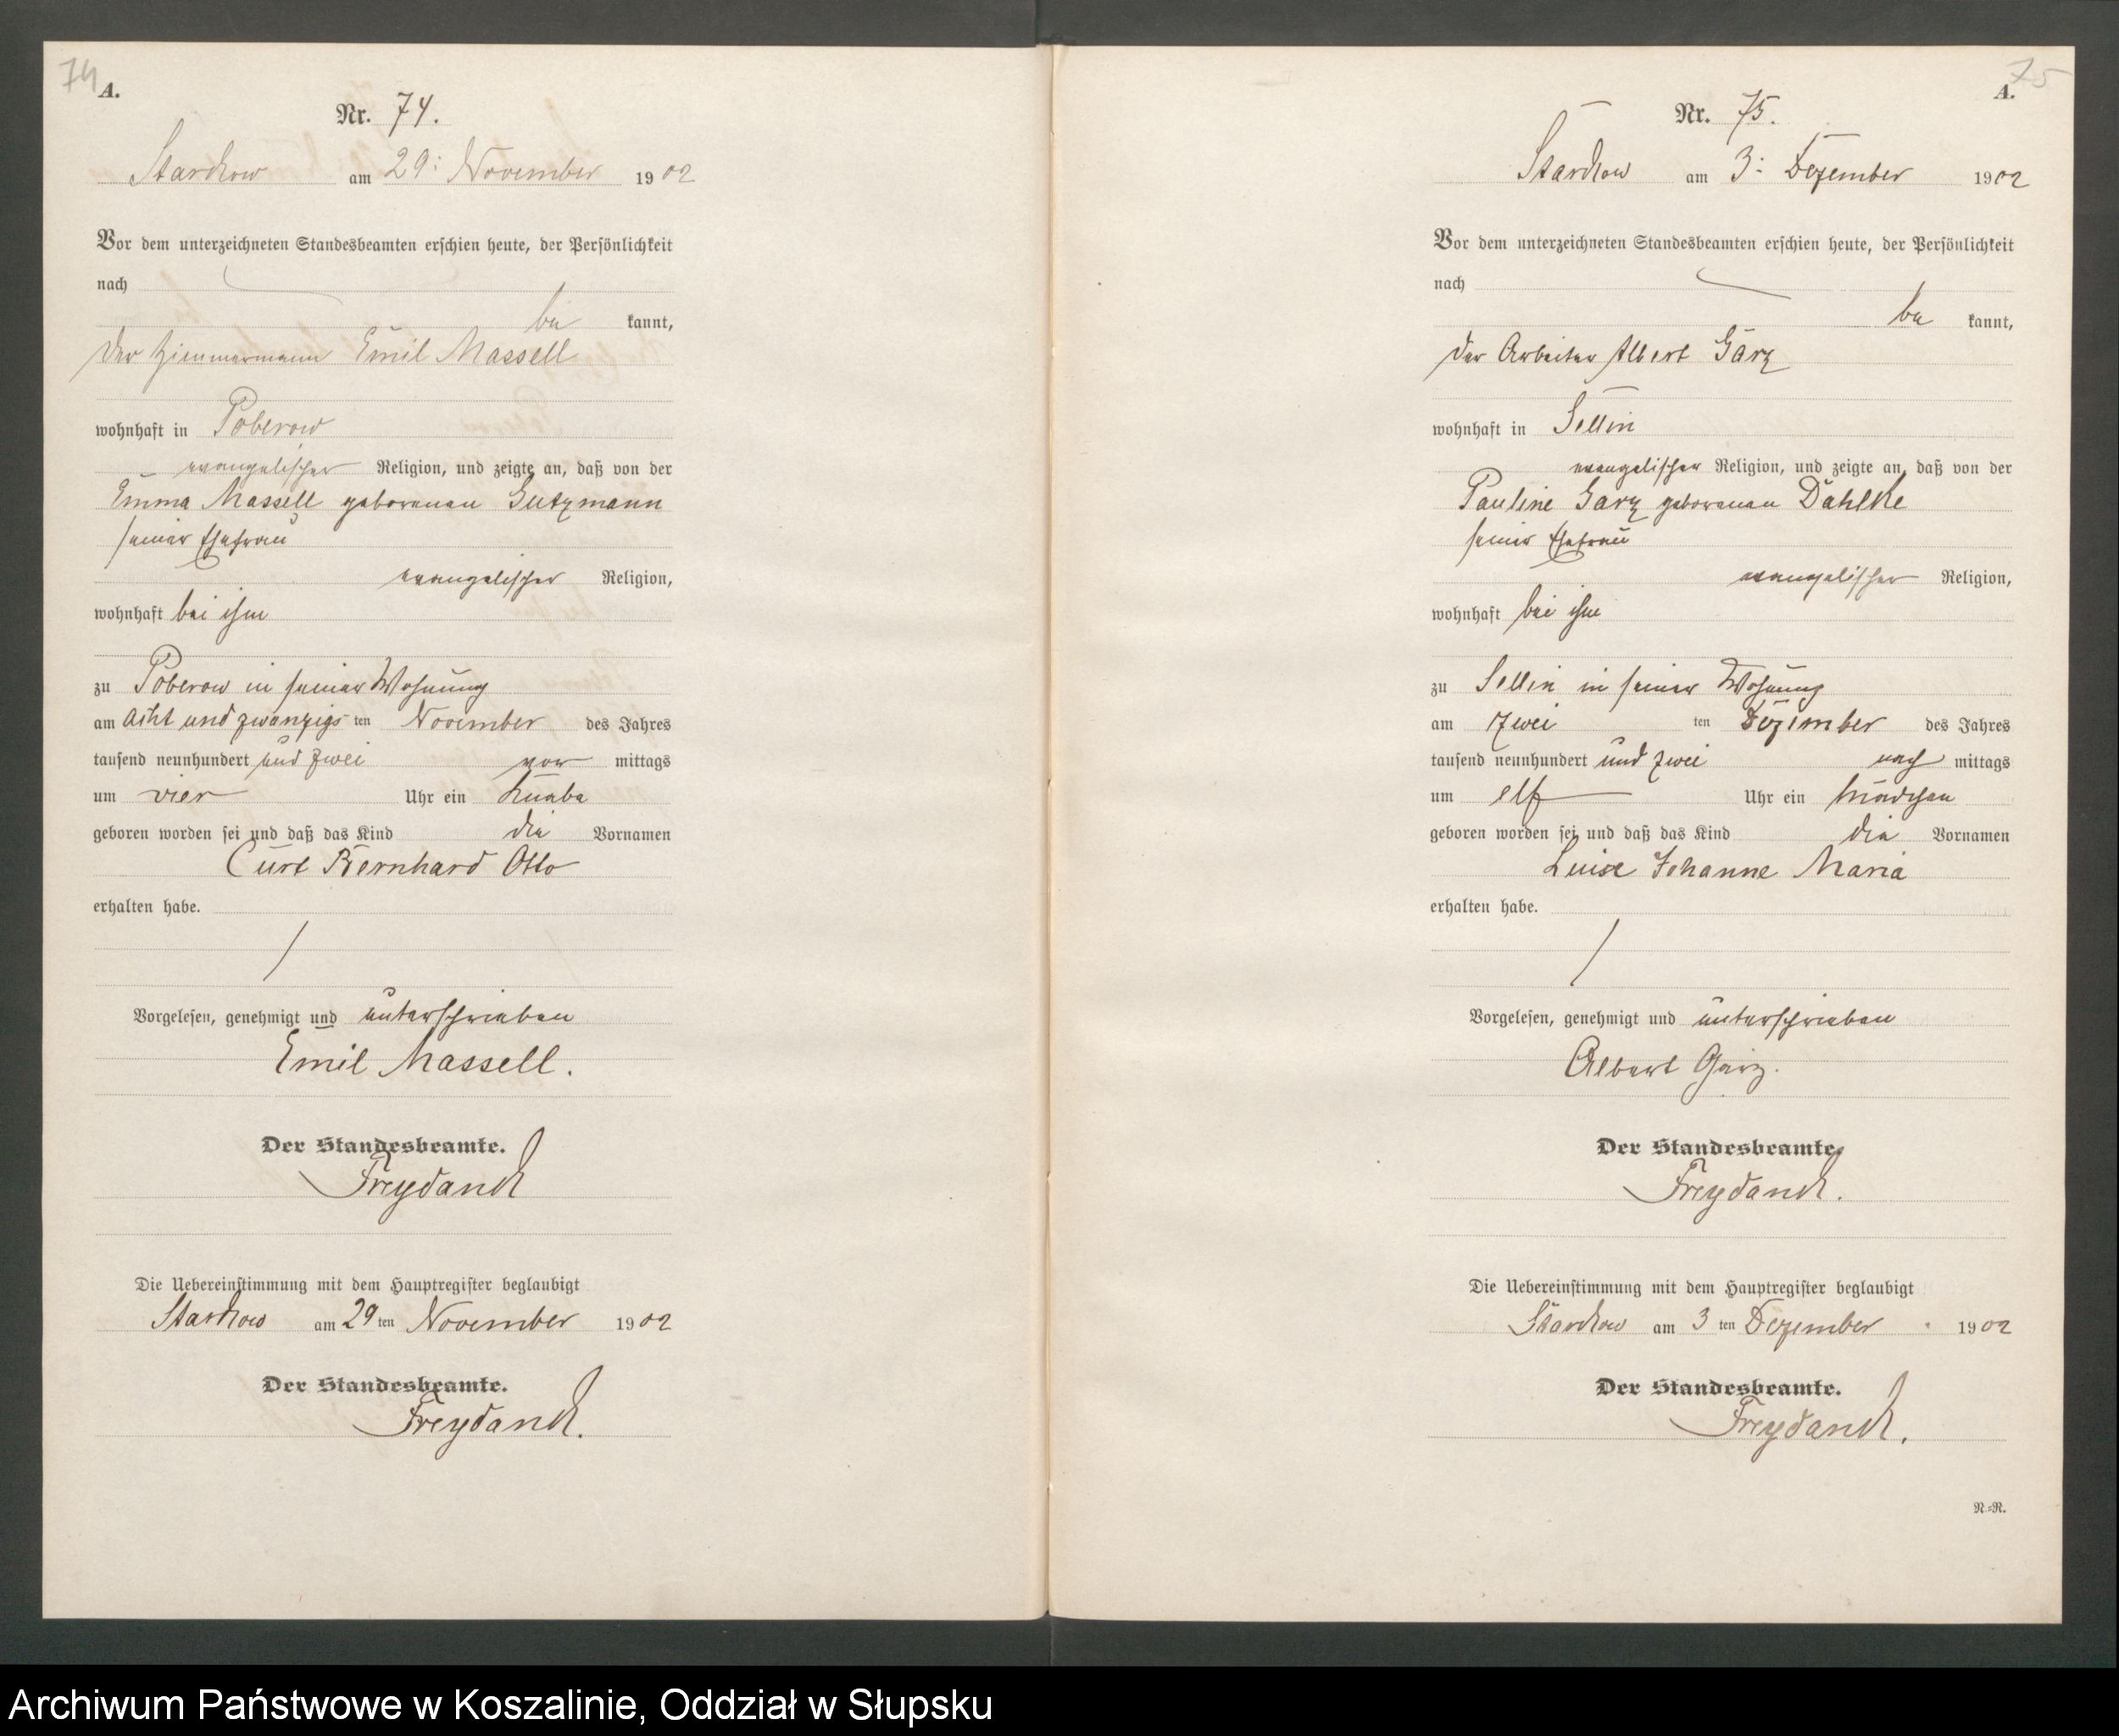 74
A.
Nr. 74.
Starckow am 29: November 1902
Vor dem unterzeichneten Standesbeamten erschien heute, der Persönlichkeit
nach
be kannt,
der Zimmermann Emil Massell
wohnhaft in Poberow
evangelischer Religion, und zeigte an, daß von der
Emma Massell geborenen Gutzmann
seiner Ehefrau
evangelischer Religion,
wohnhaft bei ihm
zu Poberow in seiner Wohnung
am acht und zwanzigs ten November des Jahres
tausend neunhundert und zwei vor mittags
um vier Uhr ein Knabe
geboren worden sei und daß das Kind die Vornamen
Curt Bernhard Otto
erhalten habe.
Vorgelesen, genehmigt und unterschrieben
Emil Massell.
Der Standesbeamte.
Freydanck
Die Uebereinstimmung mit dem Hauptregister beglaubigt
Starckow am 29 ten November 1902
Der Standesbeamte.
Freydanck.
75
A.
Nr. 75.
Starckow am 3: Dezember 1902
Vor dem unterzeichneten Standesbeamten erschien heute, der Persönlichkeit
nach
be kannt,
der Arbeiter Albert Garz
wohnhaft in Sellin
evangelischer Religion, und zeigte an, daß von der
Pauline Garz geborenen Dahlke
seiner Ehefrau
evangelischer Religion,
wohnhaft bei ihm
zu Sellin in seiner Wohnung
am zwei ten Dezember des Jahres
tausend neunhundert und zwei nach mittags
um elf Uhr ein Mädchen
geboren worden sei und daß das Kind die Vornamen
Luise Johanne Maria
erhalten habe.
Vorgelesen, genehmigt und unterschrieben
Albert Garz.
Der Standesbeamte.
Freydanck.
Die Uebereinstimmung mit dem Hauptregister beglaubigt
Starckow am 3 ten Dezember 1902
Der Standesbeamte.
Freydanck.
N=R.
Archiwum Państwowe w Koszalinie, Oddział w Słupsku